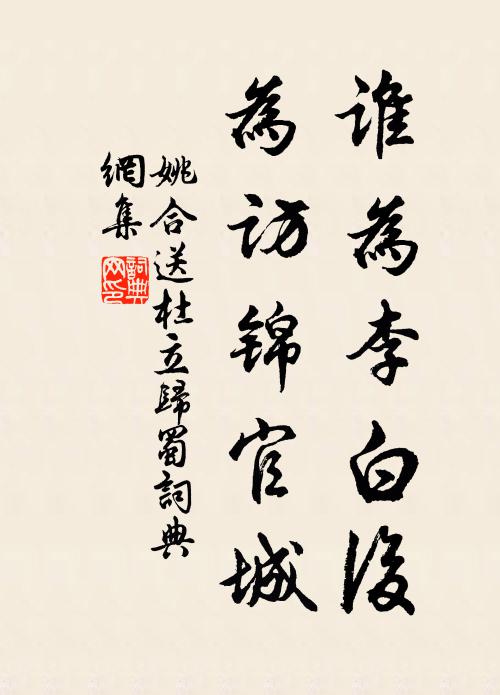 誰為李白後
為訪錦官城
姚合送杜立歸蜀詞典
網集
詞典網印